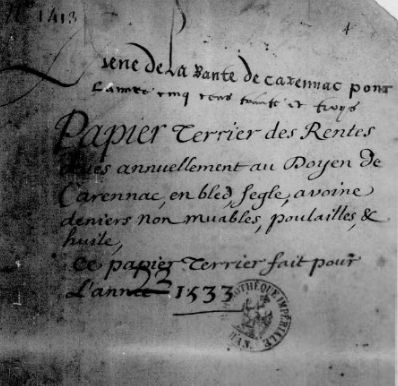 1413
4
Liene de La Rante de Carennac pour
Lannee cinq cens trante et troys
Papier Terrier des Rentes
dües annuellement au Doyen de
Carennac, en bled, segle, avoine
deniers non muables, poulailles, &
huile,
Ce papier Terrier fait pour
L'année 1533
BIBLIOTHÈQUE IMPÉRIALE